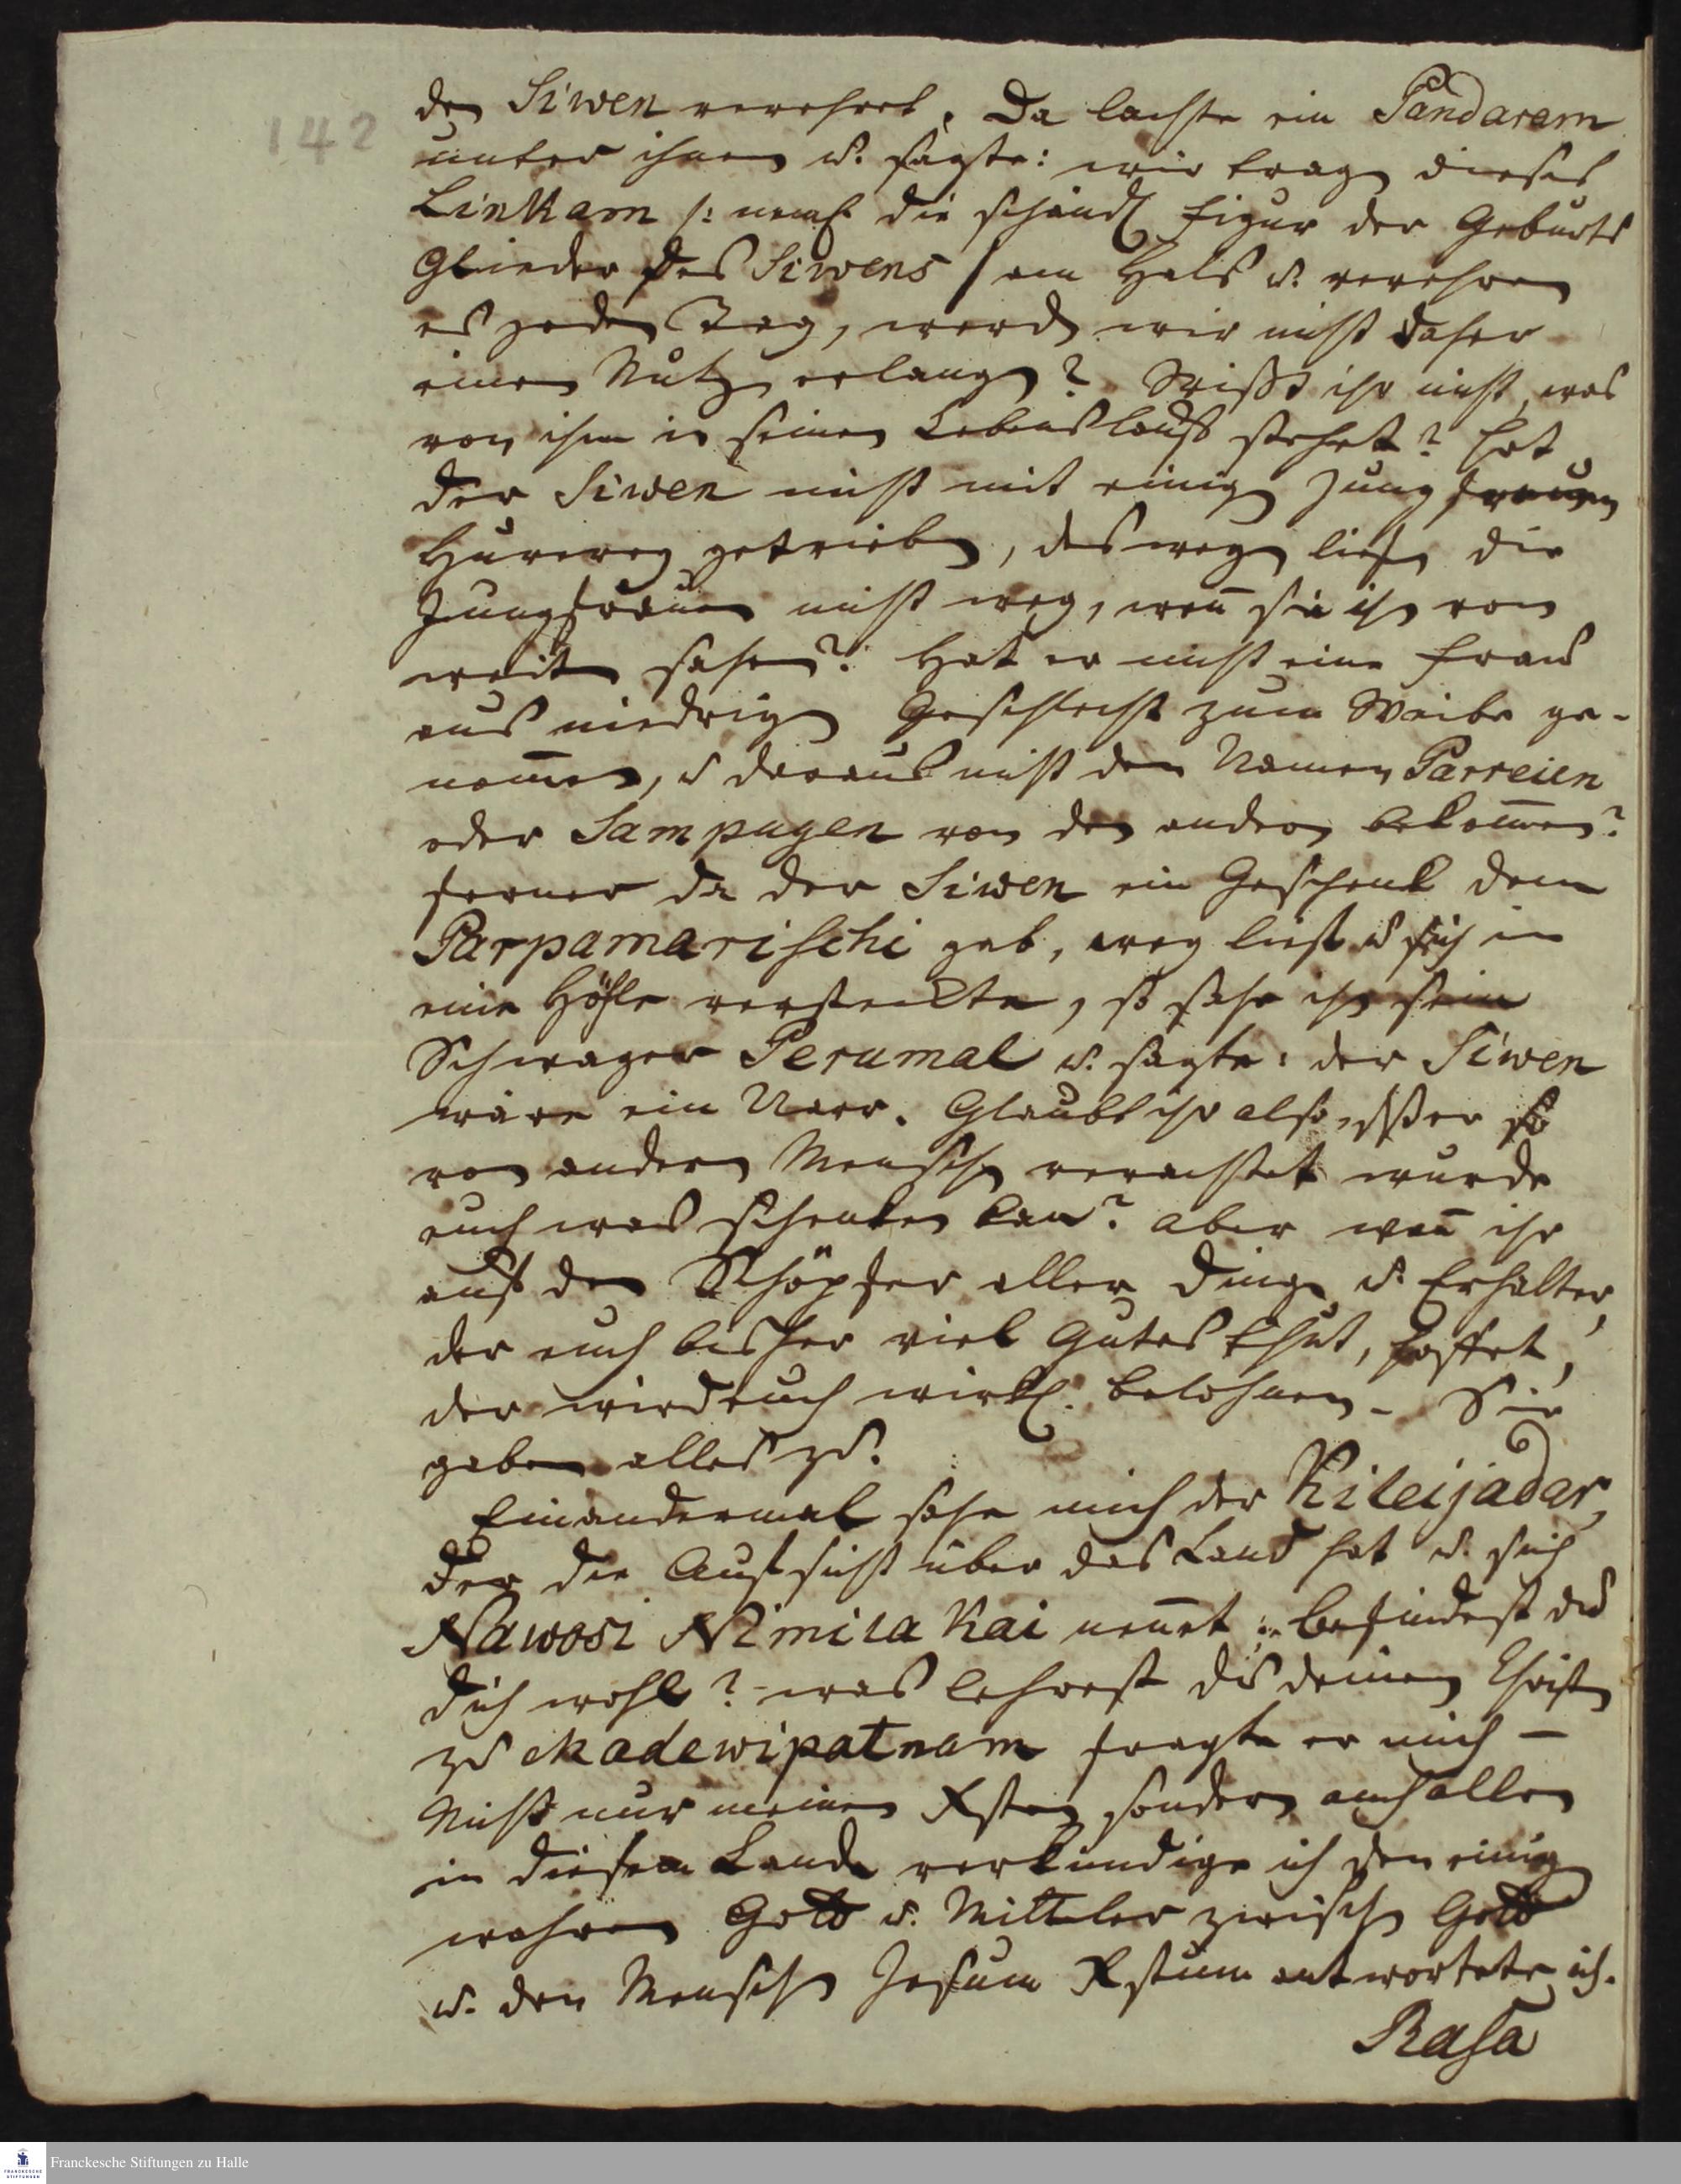 142
den Siwen verehret. Da lachte ein Pandaram
unter ihnen u. sagte: wir tragen dieses
Linkam /: neml. die schändl. Figur der Geburts
Glieder des Siwens / am Hals u. verehren
es jeden Tag, werden wir nicht daher
einen Nutzen erlangen? Wißt ihr nicht, was
von ihm in seinen Lebenslauff stehet? hat
der Siwen nicht mit einigen Jungfrauen
Hurerey getrieben, deswegen liefen die
Jungfrauen nicht weg, wen̄ sie ihn von
weiten sahen? Hat er nicht eine Frau
aus niedrigen Geschlecht zum Weibe ge-
nom̄en, u daraus nicht den Namen Parreien
oder Sampugen von den andern bekom̄en?
ferner da der Siwen ein Geschenk dem
Parpamarischi gab, weg lief u sich in
eine Höhle versteckte, so sahe ihn sein
Schwager Perumal u. sagte: der Siwen
wäre ein Narr. Glaubt ihr also, dßer so
von andern Menschen verachtet wurde
euch was schenken kan? aber wen̄ ihr
auf den Schöpfer aller Dinge u. Erhalter,
der euch bisher viel Gutes thut, hoffet,
der wird euch wirkl. belohnen. Sie
gaben alles zu.
Ein andermal sahe mich der Kileijadar,
der die Aufsicht über das Land hat u. sich
Nawosi Nimila Kai nen̄et: befindest du
dich wohl? was lehrest du deinen Christen
zu Madewipatnam fragte er mich –
Nicht nur meinen Xsten sondern auch allen
in diesem Lande verkündige ich den einigen
wahren Gott u. Mittler zwischen Gott
u. den Menschen Jesum Xstum antwortete ich.
Rasa
Franckesche Stiftungen zu Halle
FRANCKESCHE
STIFTUNGEN